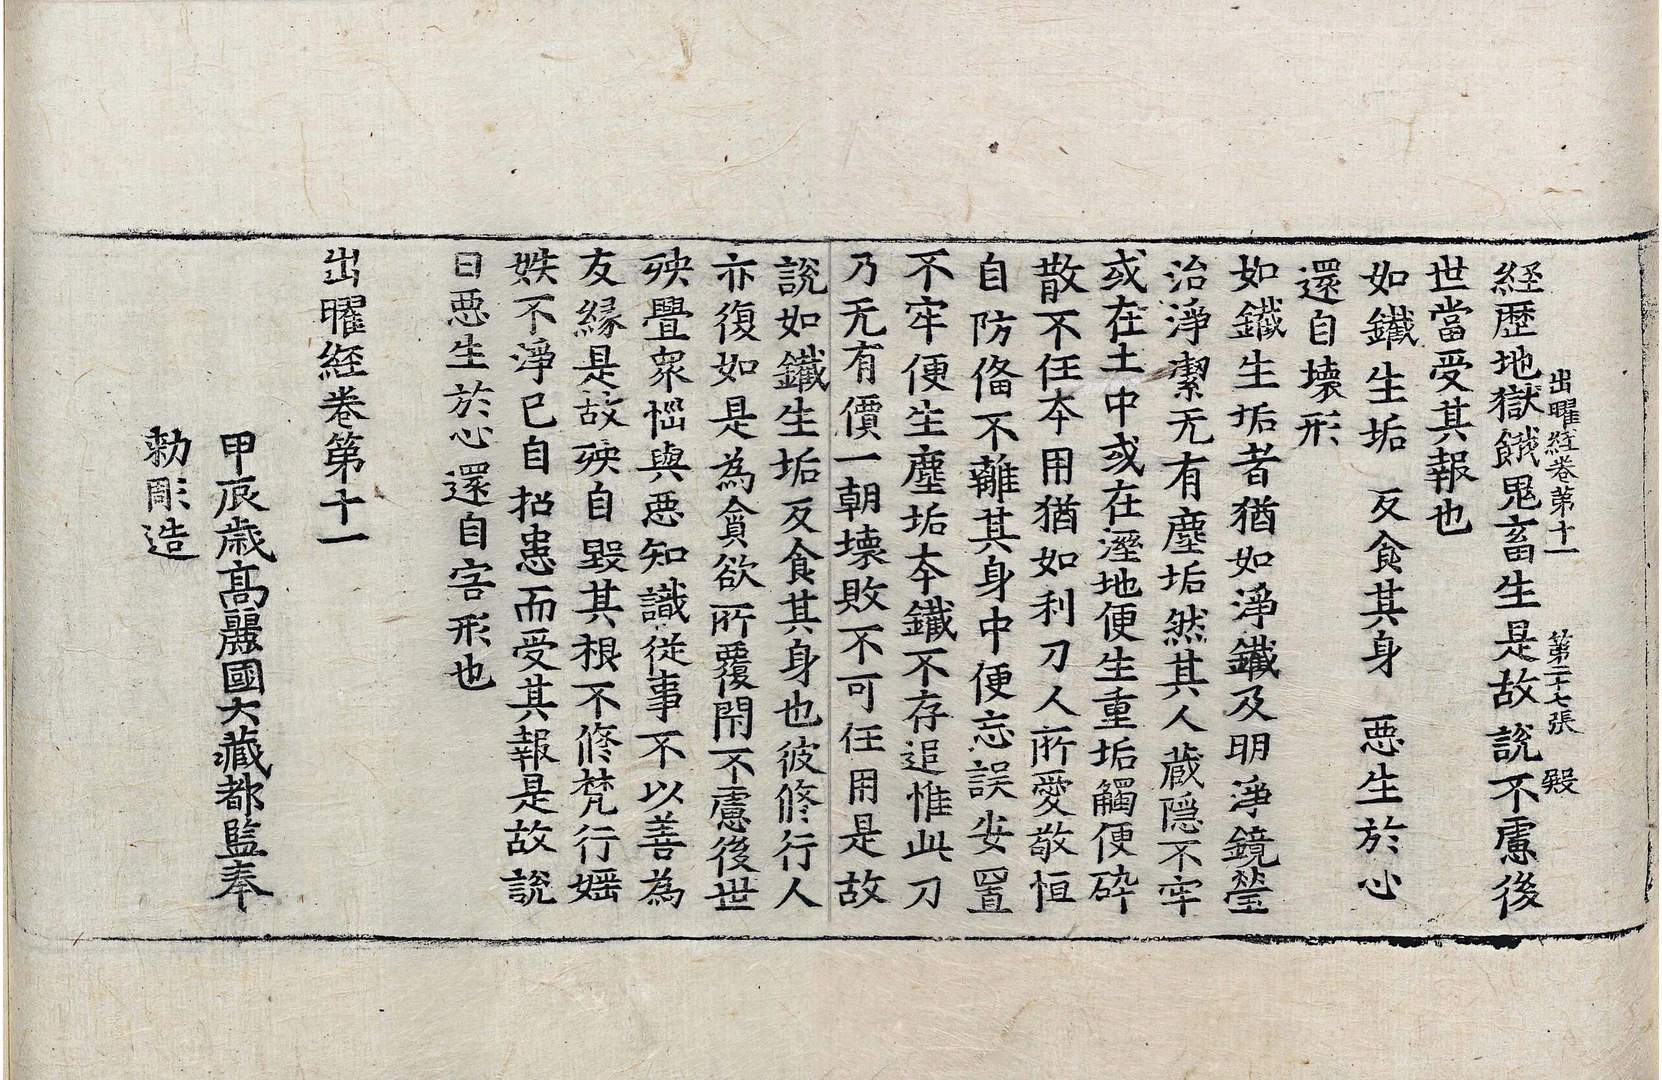 出曜經卷第十一 第二十七張 殿
経歷地獄餓鬼畜生是故說不慮後
世當受其報也
如鐵生垢 反食其身 惡生於心
還自壞形
如鐵生垢者猶如淨鐵及明淨鏡瑩
治淨潔无有塵垢然其人藏隱不牢
或在土中或在溼地便生重垢觸便碎
散不任本用猶如利刀人所愛敬恒
自防俻不離其身中便忘誤安置
不牢便生塵垢夲鐵不存追惟此刀
乃无有價一朝壞敗不可任用是故
說如鐵生垢反食其身也彼修行人
亦復如是為貪欲所覆閇不慮後世
殃舋衆惱與惡知識従事不以善為
友緣是故殃自毀其根不修梵行婬
妷不淨已自招患而受其報是故說
曰惡生於心還自害形也
出曜經卷第十一
甲辰歲高麗國大藏都監奉
勅彫造